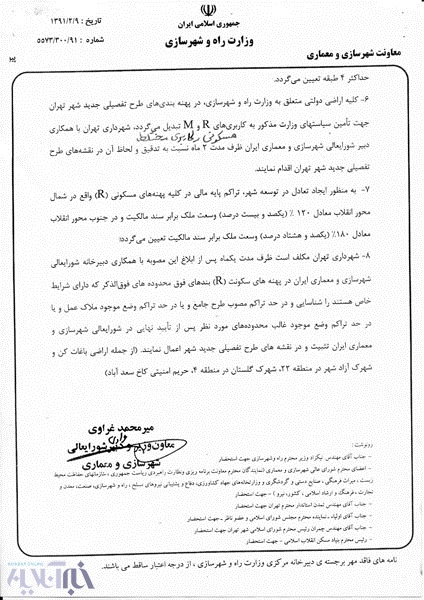 جمهوری اسلامی ایران
وزارت راه و شهرسازی
معاونت شهرسازی و معماری
تاریخ : ۱۳۹۱/۲/۹
شماره : ۵۵۷۳/۳۰۰/۹۱
حداکثر ۴ طبقه تعیین می‌گردد.
۶- کلیه اراضی دولتی متعلق به وزارت راه و شهرسازی، در پهنه بندی‌های طرح تفصیلی جدید شهر تهران
جهت تأمین سیاستهای وزارت مذکور به کاربری‌های R و M تبدیل می‌گردد، شهرداری تهران با همکاری
دبیر شورایعالی شهرسازی و معماری ایران ظرف مدت ۲ ماه نسبت به تدقیق و لحاظ آن در نقشه‌های طرح
تفصیلی جدید شهر تهران اقدام نمایند.
۷- به منظور ایجاد تعادل در توسعه شهر، تراکم پایه مالی در کلیه پهنه‌های مسکونی (R) واقع در شمال
محور انقلاب معادل ۱۲۰ ٪ (یکصد و بیست درصد) وسعت ملک برابر سند مالکیت و در جنوب محور انقلاب
معادل ۱۸۰٪ (یکصد و هشتاد درصد) وسعت ملک برابر سند مالکیت تعیین می‌گردد:
۸- شهرداری تهران مکلف است ظرف مدت یکماه پس از ابلاغ این مصوبه با همکاری دبیرخانه شورایعالی
شهرسازی و معماری ایران در پهنه های سکونت (R) بندهای فوق محدوده های فوق‌الذکر که دارای شرایط
خاص هستند را شناسایی و در حد تراکم مصوب طرح جامع و یا در حد تراکم وضع موجود ملاک عمل و یا
در حد تراکم وضع موجود غالب محدوده‌های مورد نظر پس از تأیید نهایی در شورایعالی شهرسازی و
معماری ایران تثبیت و در نقشه های طرح تفصیلی جدید شهر اعمال نمایند. (از جمله اراضی باغات کن و
شهرک آزاد شهر در منطقه ۲۲، شهرک گلستان در منطقه ۴، حریم امنیتی کاخ سعد آباد)
میرمحمد غراوی
معاون وزیر و دبیر شورایعالی
شهرسازی و معماری
رونوشت :
- جناب آقای مهندس نیکزاد وزیر محترم راه و شهرسازی جهت استحضار
- اعضای محترم شورای عالی شهرسازی و معماری (نمایندگان محترم معاونت برنامه ریزی ونظارت راهبردی ریاست جمهوری ، سازمانهای حفاظت محیط
زیست ، میراث فرهنگی ، صنایع دستی و گردشگری و وزارتخانه‌های جهاد کشاورزی، دفاع و پشتیبانی نیروهای مسلح ، راه و شهرسازی، صنعت، معدن و
تجارت ،فرهنگ و ارشاد اسلامی ، کشور، نیرو ) – جهت استحضار
- جناب آقای مهندس تمدن استاندار محترم تهران جهت استحضار
- جناب آقای اولیاء نماینده محترم مجلس شورای اسلامی و عضو ناظر –جهت استحضار
- جناب آقای مهندس چمران رئیس محترم شورای اسلامی شهر تهران جهت استحضار
- رئیس محترم بنیاد مسکن انقلاب اسلامی – جهت استحضار
نامه های فاقد مهر برجسته ی دبیرخانه مرکزی وزارت راه و شهرسازی ، از درجه اعتبار ساقط می باشند.
خبرآنلاین